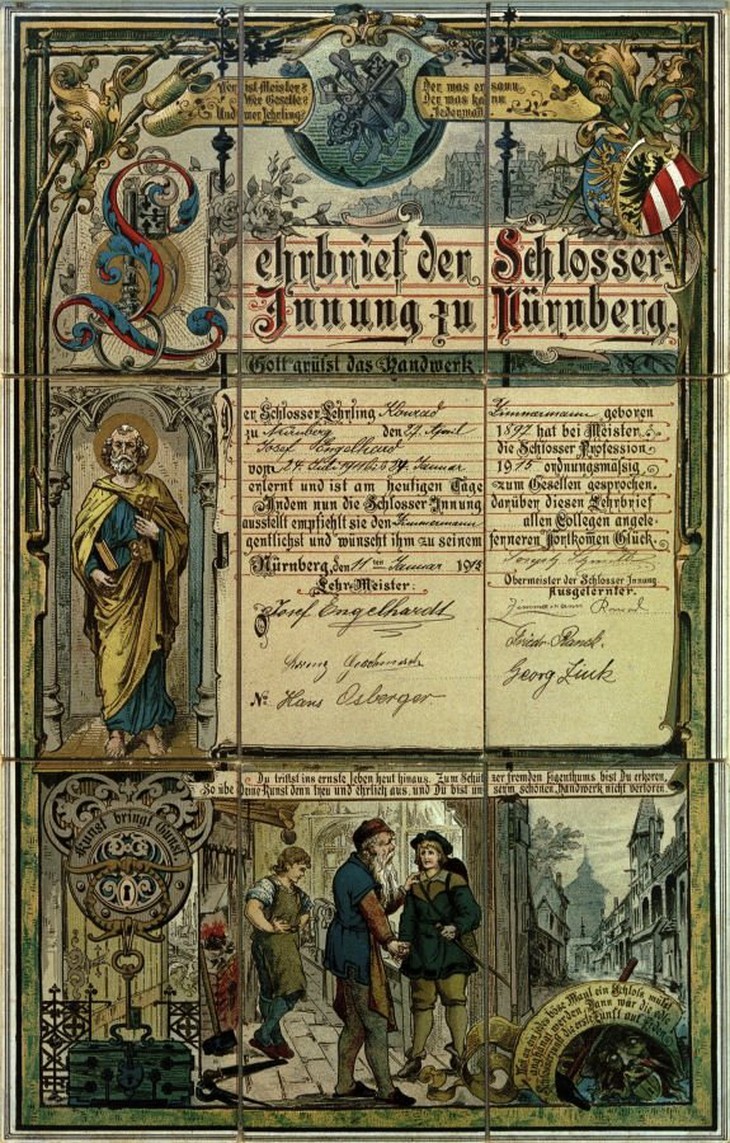 Wer ist Meister?
Wer Geselle?
Und wer Lehrling?
Der was ersann.
Der was kann.
Jedermann
Lehrbrief der Schlosser-
Innung zu Nürnberg.
Gott grüsst das Handwerk
Der Schlosser Lehrling Konrad Zimmermann geboren
zu Nürnberg den 27. April 1897 hat bei Meister
Josef Engelhard die Schlosser Profession
vom 24. Juli 1911 bis Januar 1915 ordnungsmäsig
erlernt und ist am heutigen Tage zum Gesellen gesprochen.
Indem nun die Schlosser Innung darüber diesen Lehrbrief
ausstellt empfiehlt sie den Zimmermann allen Collegen angele-
gentlichst und wünscht ihm zu seinem ferneren Fortkomen Glück.
Nürnberg, den 11ten Januar 1915
Lehr-Meister:
Josef Engelhardt
Obermeister der Schlosser Innung
Ausgelernter.
Zimmermann Konrad
Georg Zink
No Hans Osberger
Du trittst ins ernste Leben heut hinaus. Zum Schützer fremden Eigenthums bist Du erkoren,
So übe Deine Kunst denn treu und ehrlich aus, und Du bist unserm schönen Handwerk nicht verloren.
Kunst bringt Gunst.